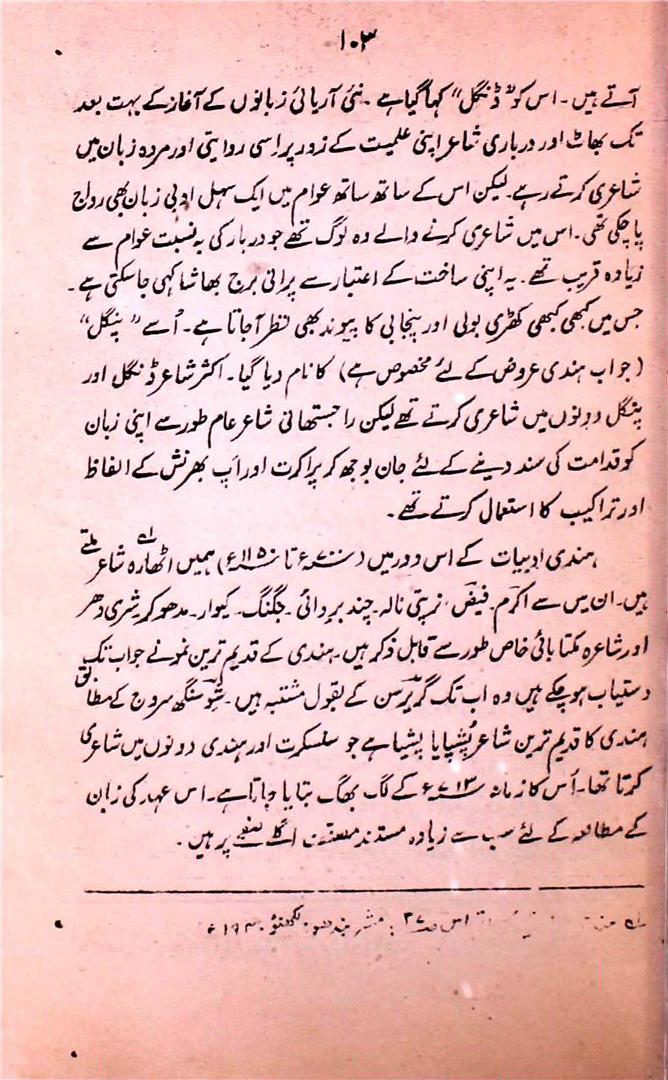 ۱۰۳
آتے ہیں۔ اس کو "ڈنگل" کہا گیا ہے۔ نئی آریائی زبانوں کے آغاز کے بہت بعد
تک بھاٹ اور درباری شاعر اپنی علمیت کے زور پر اسی روایتی اور مردہ زبان میں
شاعری کرتے رہے۔ لیکن اس کے ساتھ ساتھ عوام میں ایک سہل ادبی زبان بھی رواج
پا چکی تھی۔ اس میں شاعری کرنے والے وہ لوگ تھے جو دربار کی بہ نسبت عوام سے
زیادہ قریب تھے۔ یہ اپنی ساخت کے اعتبار سے پرانی برج بھاشا کہی جا سکتی ہے۔
جس میں کبھی کبھی کھڑی بولی اور پنجابی کا پیوند بھی نظر آ جاتا ہے۔ اُسے "پنگل"
(جو اب ہندی عروض کے لئے مخصوص ہے) کا نام دیا گیا۔ اکثر شاعر ڈنگل اور
پنگل دونوں میں شاعری کرتے تھے لیکن راجستھانی شاعر عام طور سے اپنی زبان
کو قدامت کی سند دینے کے لئے جان بوجھ کر پراکرت اور اَپ بھرنش کے الفاظ
اور تراکیب کا استعمال کرتے تھے۔
ہندی ادبیات کے اس دور میں (۷۰۰ء تا ۱۱۵۰ء) ہمیں اٹھارہ شاعر ملتے
ہیں۔ ان میں سے اکرم۔ فیض۔ نرپتی نالہ۔ چند بردائی۔ جگنگ۔ کیوار۔ مدھوکر۔ شری دھر
اور شاعرہ مکتا بائی خاص طور سے قابل ذکر ہیں۔ ہندی کے قدیم ترین نمونے جو اب تک
دستیاب ہو چکے ہیں وہ اب تک گریرسن کے بقول مشتبہ ہیں۔ شوسنگھ سروج کے مطابق
ہندی کا قدیم ترین شاعر پُشپا یا پشیا ہے جو سنسکرت اور ہندی دونوں میں شاعری
کرتا تھا۔ اُس کا زمانہ ۷۱۳ء کے لگ بھگ بتایا جاتا ہے۔ اس عہد کی زبان
کے مطالعہ کے لئے سب سے زیادہ مستند مصنف اگلے صفحے پر ہیں۔
مشر بندھو۔ لکھنؤ